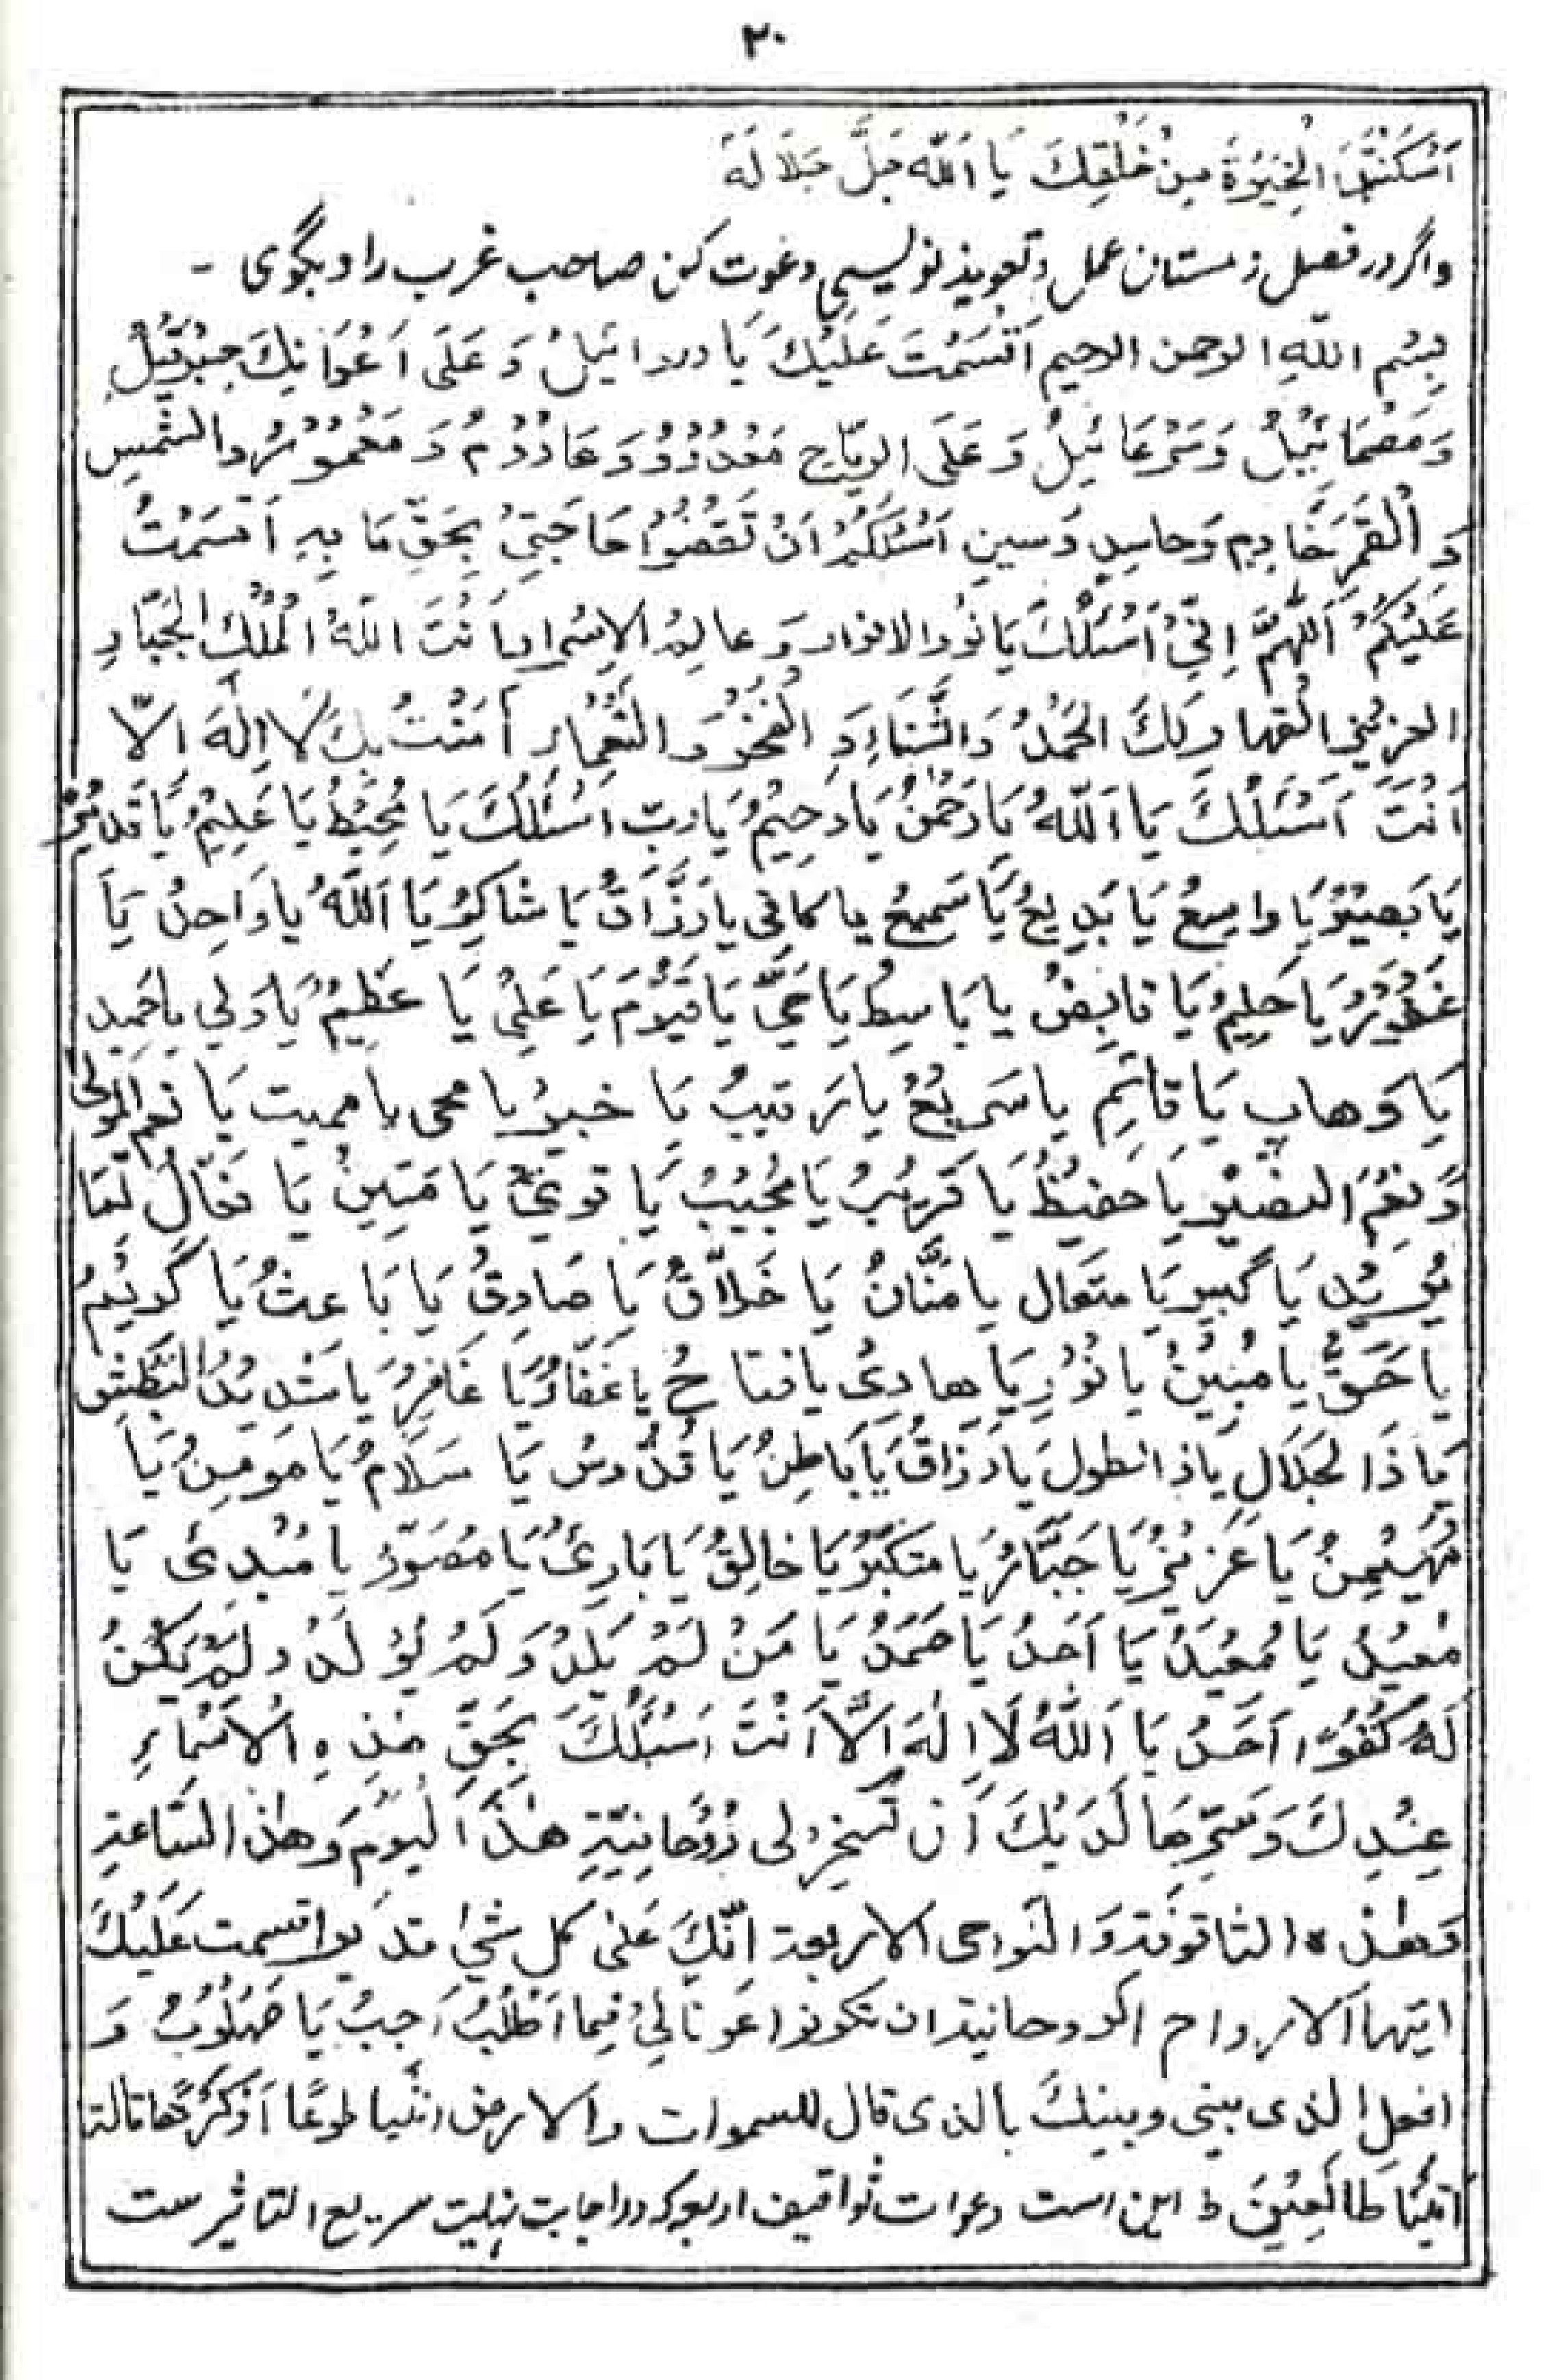 ٣٠
اَسْكَنْتَهُ الْخِيَرَةَ مِنْ خَلْقِكَ يَا اَللّٰه جَلَّ جَلَا لَهَ
واگر در فصل زمستان عمل و تعویذ نویسی دعوت کن صاحب غرب را و بگوی -
بِسْمِ اللّٰهِ الرحمن الرحيم اَقْسَمْتَ عَلَيْكَ يَا دردائيل وَ عَلٰى اَعْوَانِكَ
وَ عَلَى الرِّيَاحِ وَ الشَّمسِ
وَ الْقَمَرِ خَادِمِ وَ حَاسِدٍ وَسين اَسْئَلُكُمْ اَنْ تَقْضُوْا حَاجَتِىْ بِحَقِّ مَا بِهِ اَقْسَمْتُ
عَلَيْكُمْ اَللّٰهُمَّ اِنِّىْ اَسْئَلُكَ يَا نُوْرَ الانوار وَ عالِمُ الاسْرار اَنْتَ اللّٰهُ الْمَلِكُ الْجَبَّارِ
العزيز القهار لَكَ الْحَمْدُ وَ الثَّنَاءِ وَ الْفَخْرُ وَ النَّعْمَاءِ اٰمَنْتُ بِكَ لَا اِلٰهَ اِلَّا
اَنْتَ اَسْئَلُكَ يَا اَللّٰهُ يَا رَحْمٰنُ يَا رَحِيْمُ يَا رَبِّ اَسْئَلُكَ يَا مُحِيْطُ يَا عَلِيْمُ يَا قَدِيْرُ
يَا بَصِيْرُ يَا وَاسِعُ يَا بَدِيعُ يَا سَمِيعُ يا كافى يا رَزَّاقُ يَا شَاكِرُ يَا اَللّٰهُ يا وَاحِدُ يَا
غَفُوْرُ يَا حَلِيْمُ يَا قَابِضُ يا بَاسِطُ يَا حَىُّ يَا قَيُّوْمُ يَا عَلِىُّ يَا عَظِيْمُ يَا وَلى يا حَمِيد
يَا وَهاب يَا قَائِمُ يا سَرِيْعُ يا رَقيبُ يَا خَبِيْرُ يا محى يا مميت يَا نعم المولى
وَ نِعْمَ النصير يا حَفِيْظُ يَا قَرِيْبُ يَا مُجِيْبُ يَا قَوِىُّ يَا مَتِينُ يَا فَعَّالُ لِمَا
يُرِيْدُ يَا كَبِير يَا متعال يا مَنَّانُ يَا خَلَّاقُ يَا صَادِقُ يَا بَا عِثُ يَا كَرِيْمُ
يا حَقُّ يا مُبِيْنُ يا نُوْرُ يَا هادِىُ يا فتاحُ يا غَفَّارُ يَا غَافِرُ يا شَدِيْدُ الْبَطْشِ
يَا ذَا الْجَلَالِ يا ذا الطول يَا رَزَّاقُ يَا بَاطِنُ يَا قُدُّوسُ يَا سَلَامُ يَا مَومِنُ يَا
مُهَيْمِنُ يَا عَزِيْزُ يَا جَبَّارُ يَا مُتَكَبِّرُ يَا خَالِقُ يَا بَارِئُ يَا مُصَوِّرُ يا مُبْدِئُ يَا
مُعِيْدُ يَا مُعِيْدُ يَا اَحَدُ يَا صَمَدُ يَا مَنْ لَمْ يَلِدْ وَ لَمْ يُوْ لَدْ وَ لَمْ يَكُنْ
لَهُ كُفُوًا اَحَدُ يَا اَللّٰهُ لَا اِلٰهَ اِلَّا اَنْتَ اَسْئَلُكَ بِحَقِّ هٰذِهِ الْاَسْمَاءِ
عِنْدِكَ وَ لَدَيْكَ اَن تُسَخِّرْ لى رُوْحَانِيَّةِ هٰذَا الْيَوْمِ وَ هٰذِ السَّاعَةِ
وَ هٰذِه الثاقوفة وَ النَّواحى الاربعة اِنَّكَ عَلٰى كل شَىْءٍ قدير اقسمت عَلَيْكَ
ايتها الارواح الروحانية ان تكونوا عَونًا لِىْ فِيما اَطْلُبُ اَجِبُ يَا وَ
افعل الذى بينى وبينك بالذى قال للسموات والارض ائتيا طوعًا اَوْ كَرْهًا قالتا
اَتَيْنَا طَائِعِيْنَ ط این است دعوات ثواقیف اربعه که در اجابت نہایت سریع التاثیر ست